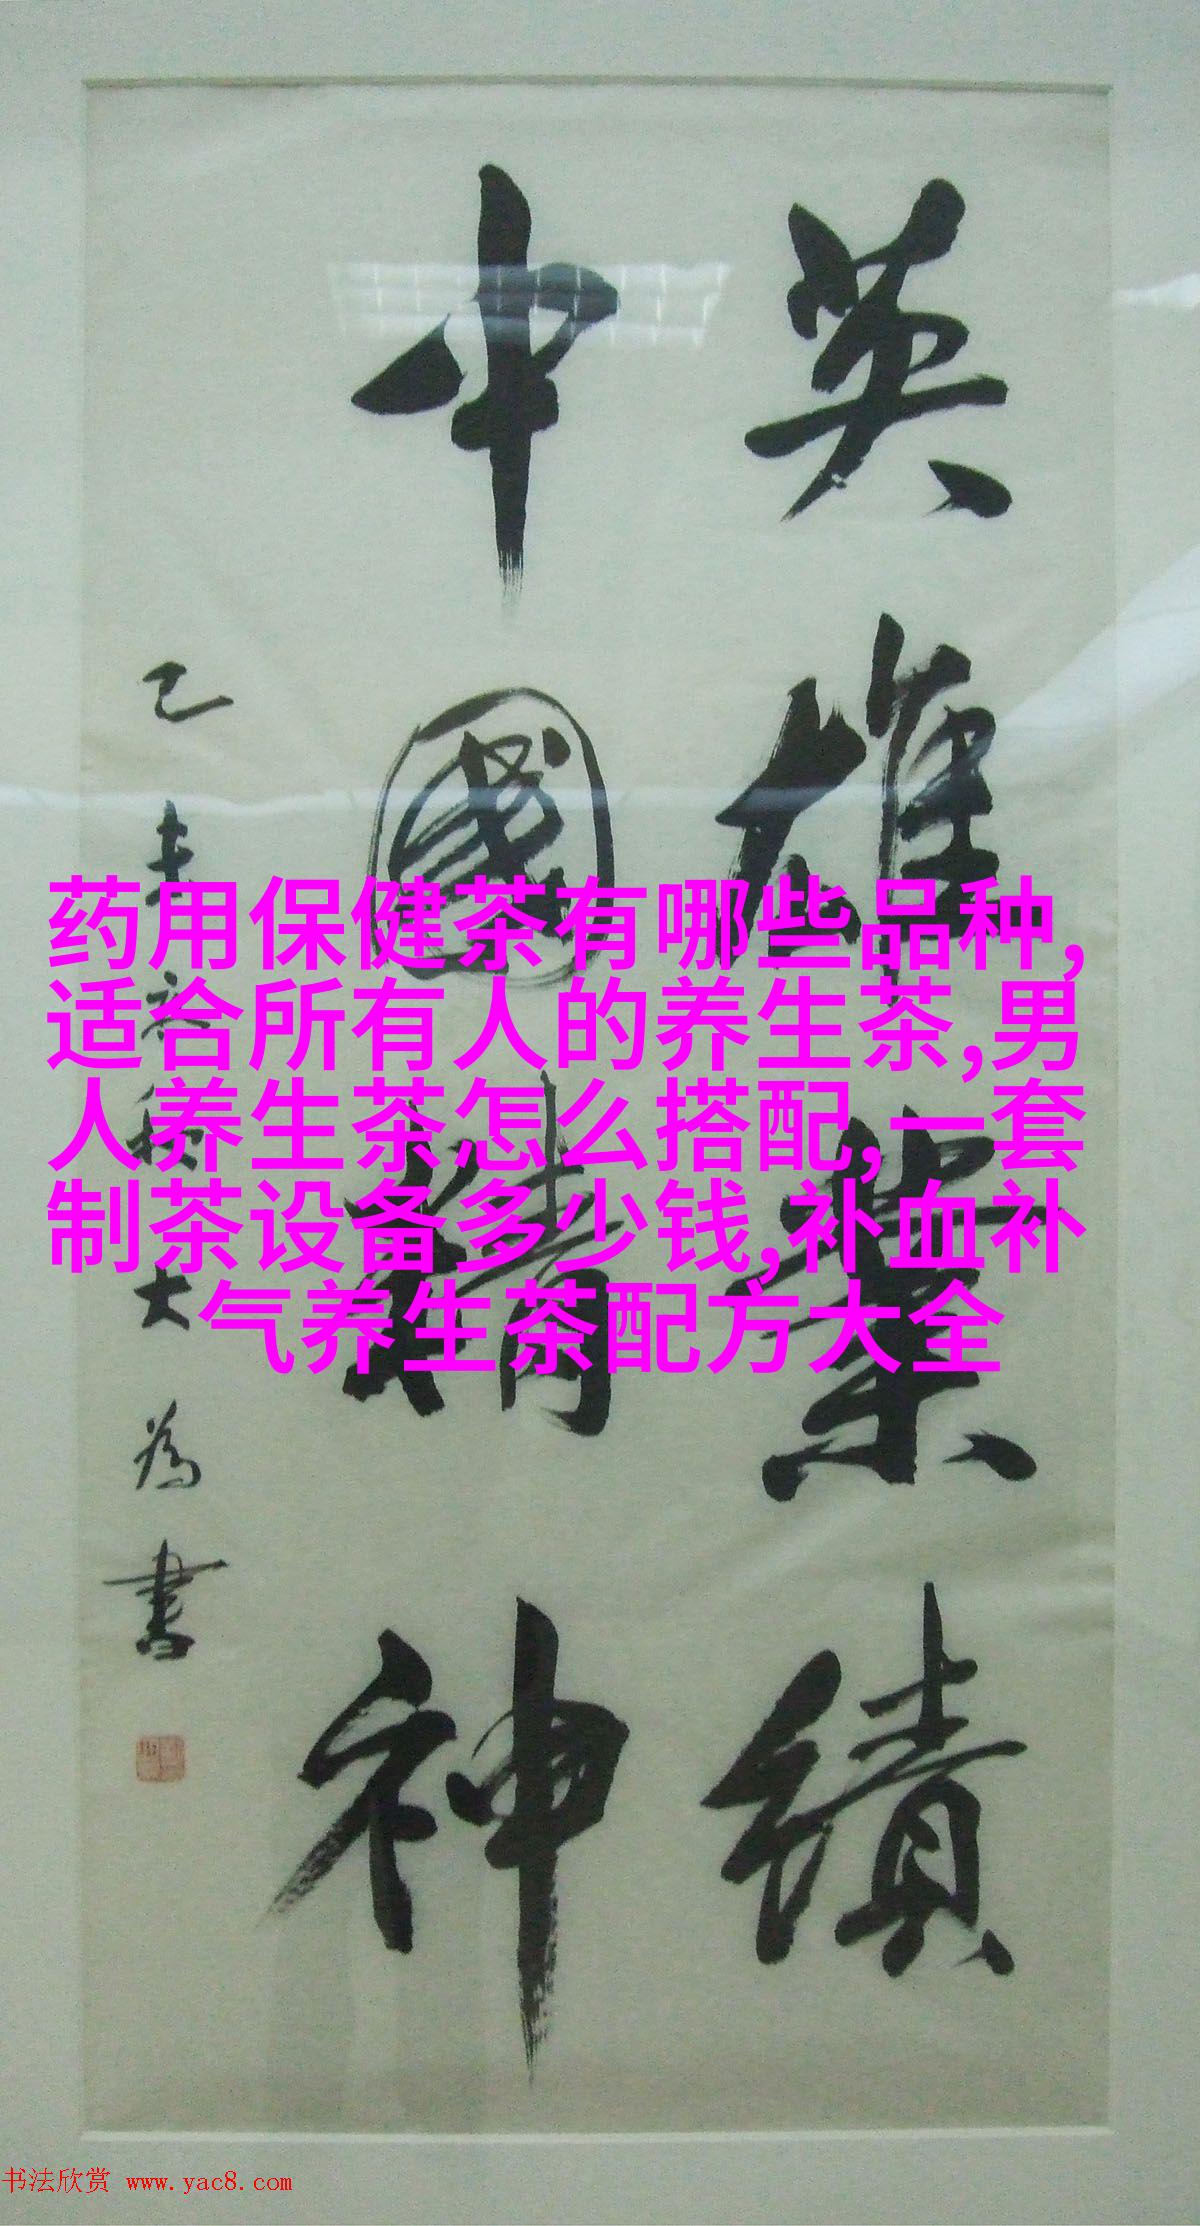 英雄業績
中國精神
秋大為書
药用保健茶有哪些品种,
适合所有人的养生茶,男
人养生茶怎么搭配,一套
制茶设备多少钱,补血补
气养生茶配方大全
书法欣赏 www.yac8.com